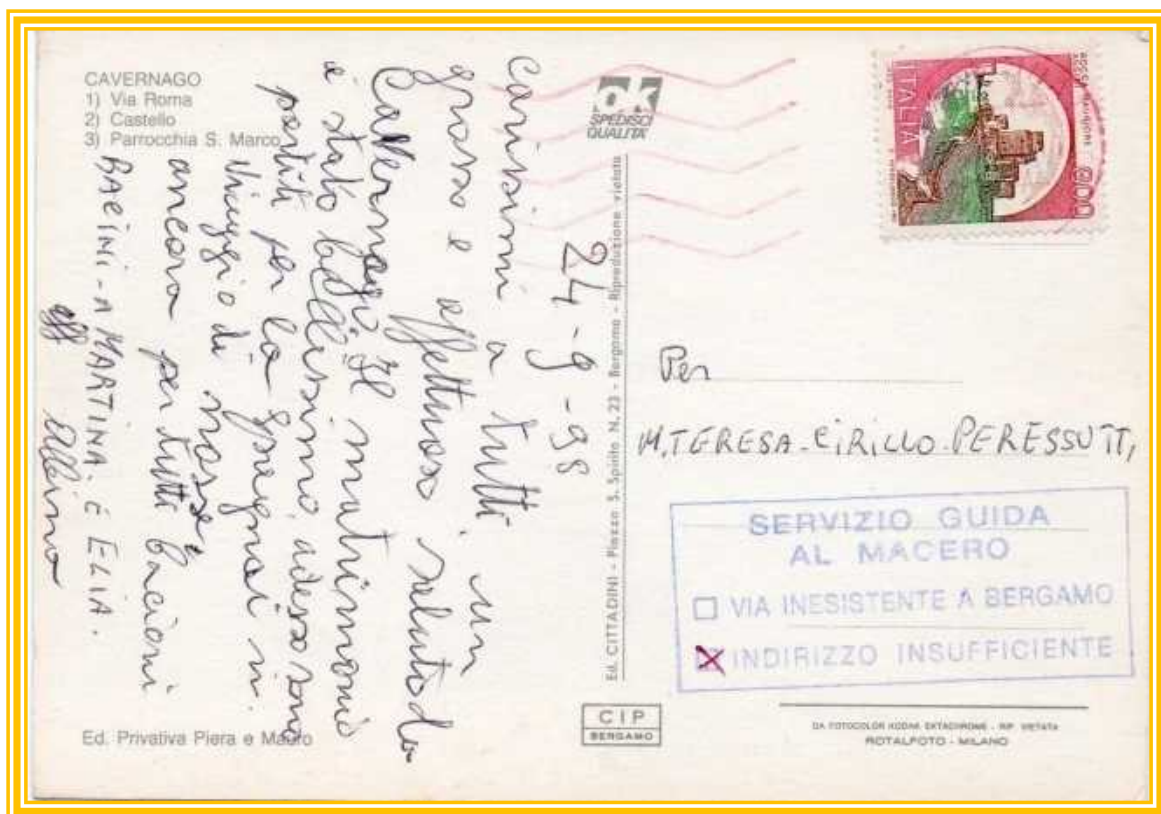 CAVERNAGO
1) Via Roma
2) Castello
3) Parrocchia S. Marco
24-9-98
Carissimi a tutti un
grosso e affettuoso saluto da
Cavernago. Il matrimonio
è stato bellissimo, adesso sono
partiti per la
viaggio di nozze,
ancora per tutti bacioni
BACINI-A MARTINA. E ELIA.
aff Albino
Ed. Privativa Piera e Mauro
ok
SPEDISCI
QUALITA'
Ed. CITTADINI - Piazza S. Spirito N. 23 - Bergamo - Riproduzione vietata
CIP
BERGAMO
ITALIA
Per
M.TERESA-CIRILLO-PERESSUTTI,
SERVIZIO GUIDA
AL MACERO
VIA INESISTENTE A BERGAMO
INDIRIZZO INSUFFICIENTE
DA FOTOCOLOR KODAK EKTACHROME - RIP. VIETATA
ROTALFOTO - MILANO